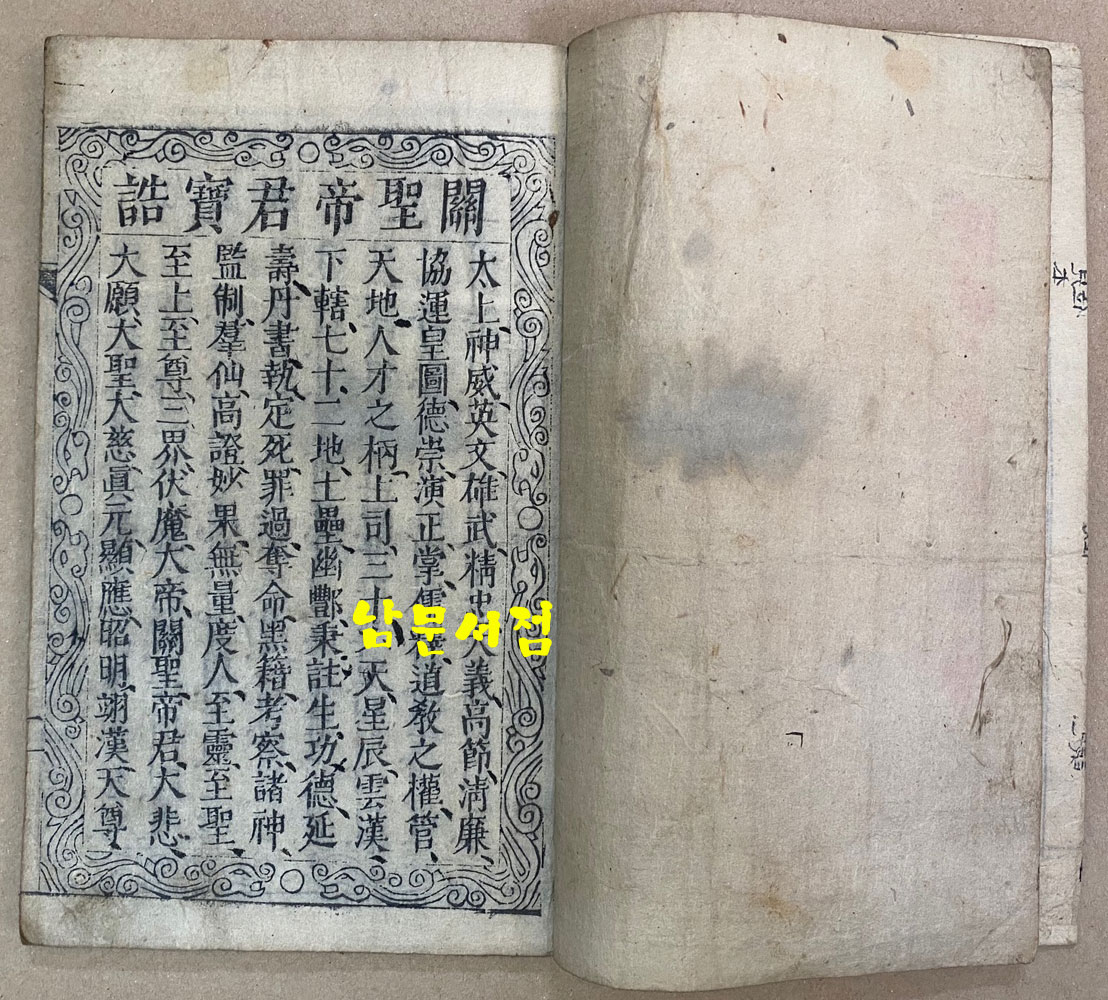 關聖帝君寶誥
太上神威英文雄武精忠大義高節清廉
協運皇圖德崇演正掌儒釋道教之權管
天地人才之柄上司三十天星辰雲漢
下轄七十二地土壘幽酆秉註生功德延
壽丹書執定死罪過奪命黑籍考察諸神
監制羣仙高證妙果無量度人至靈至聖
至上至尊三界伏魔大帝關聖帝君大悲
大願大聖大慈眞元顯應昭明翊漢天尊
남문서점